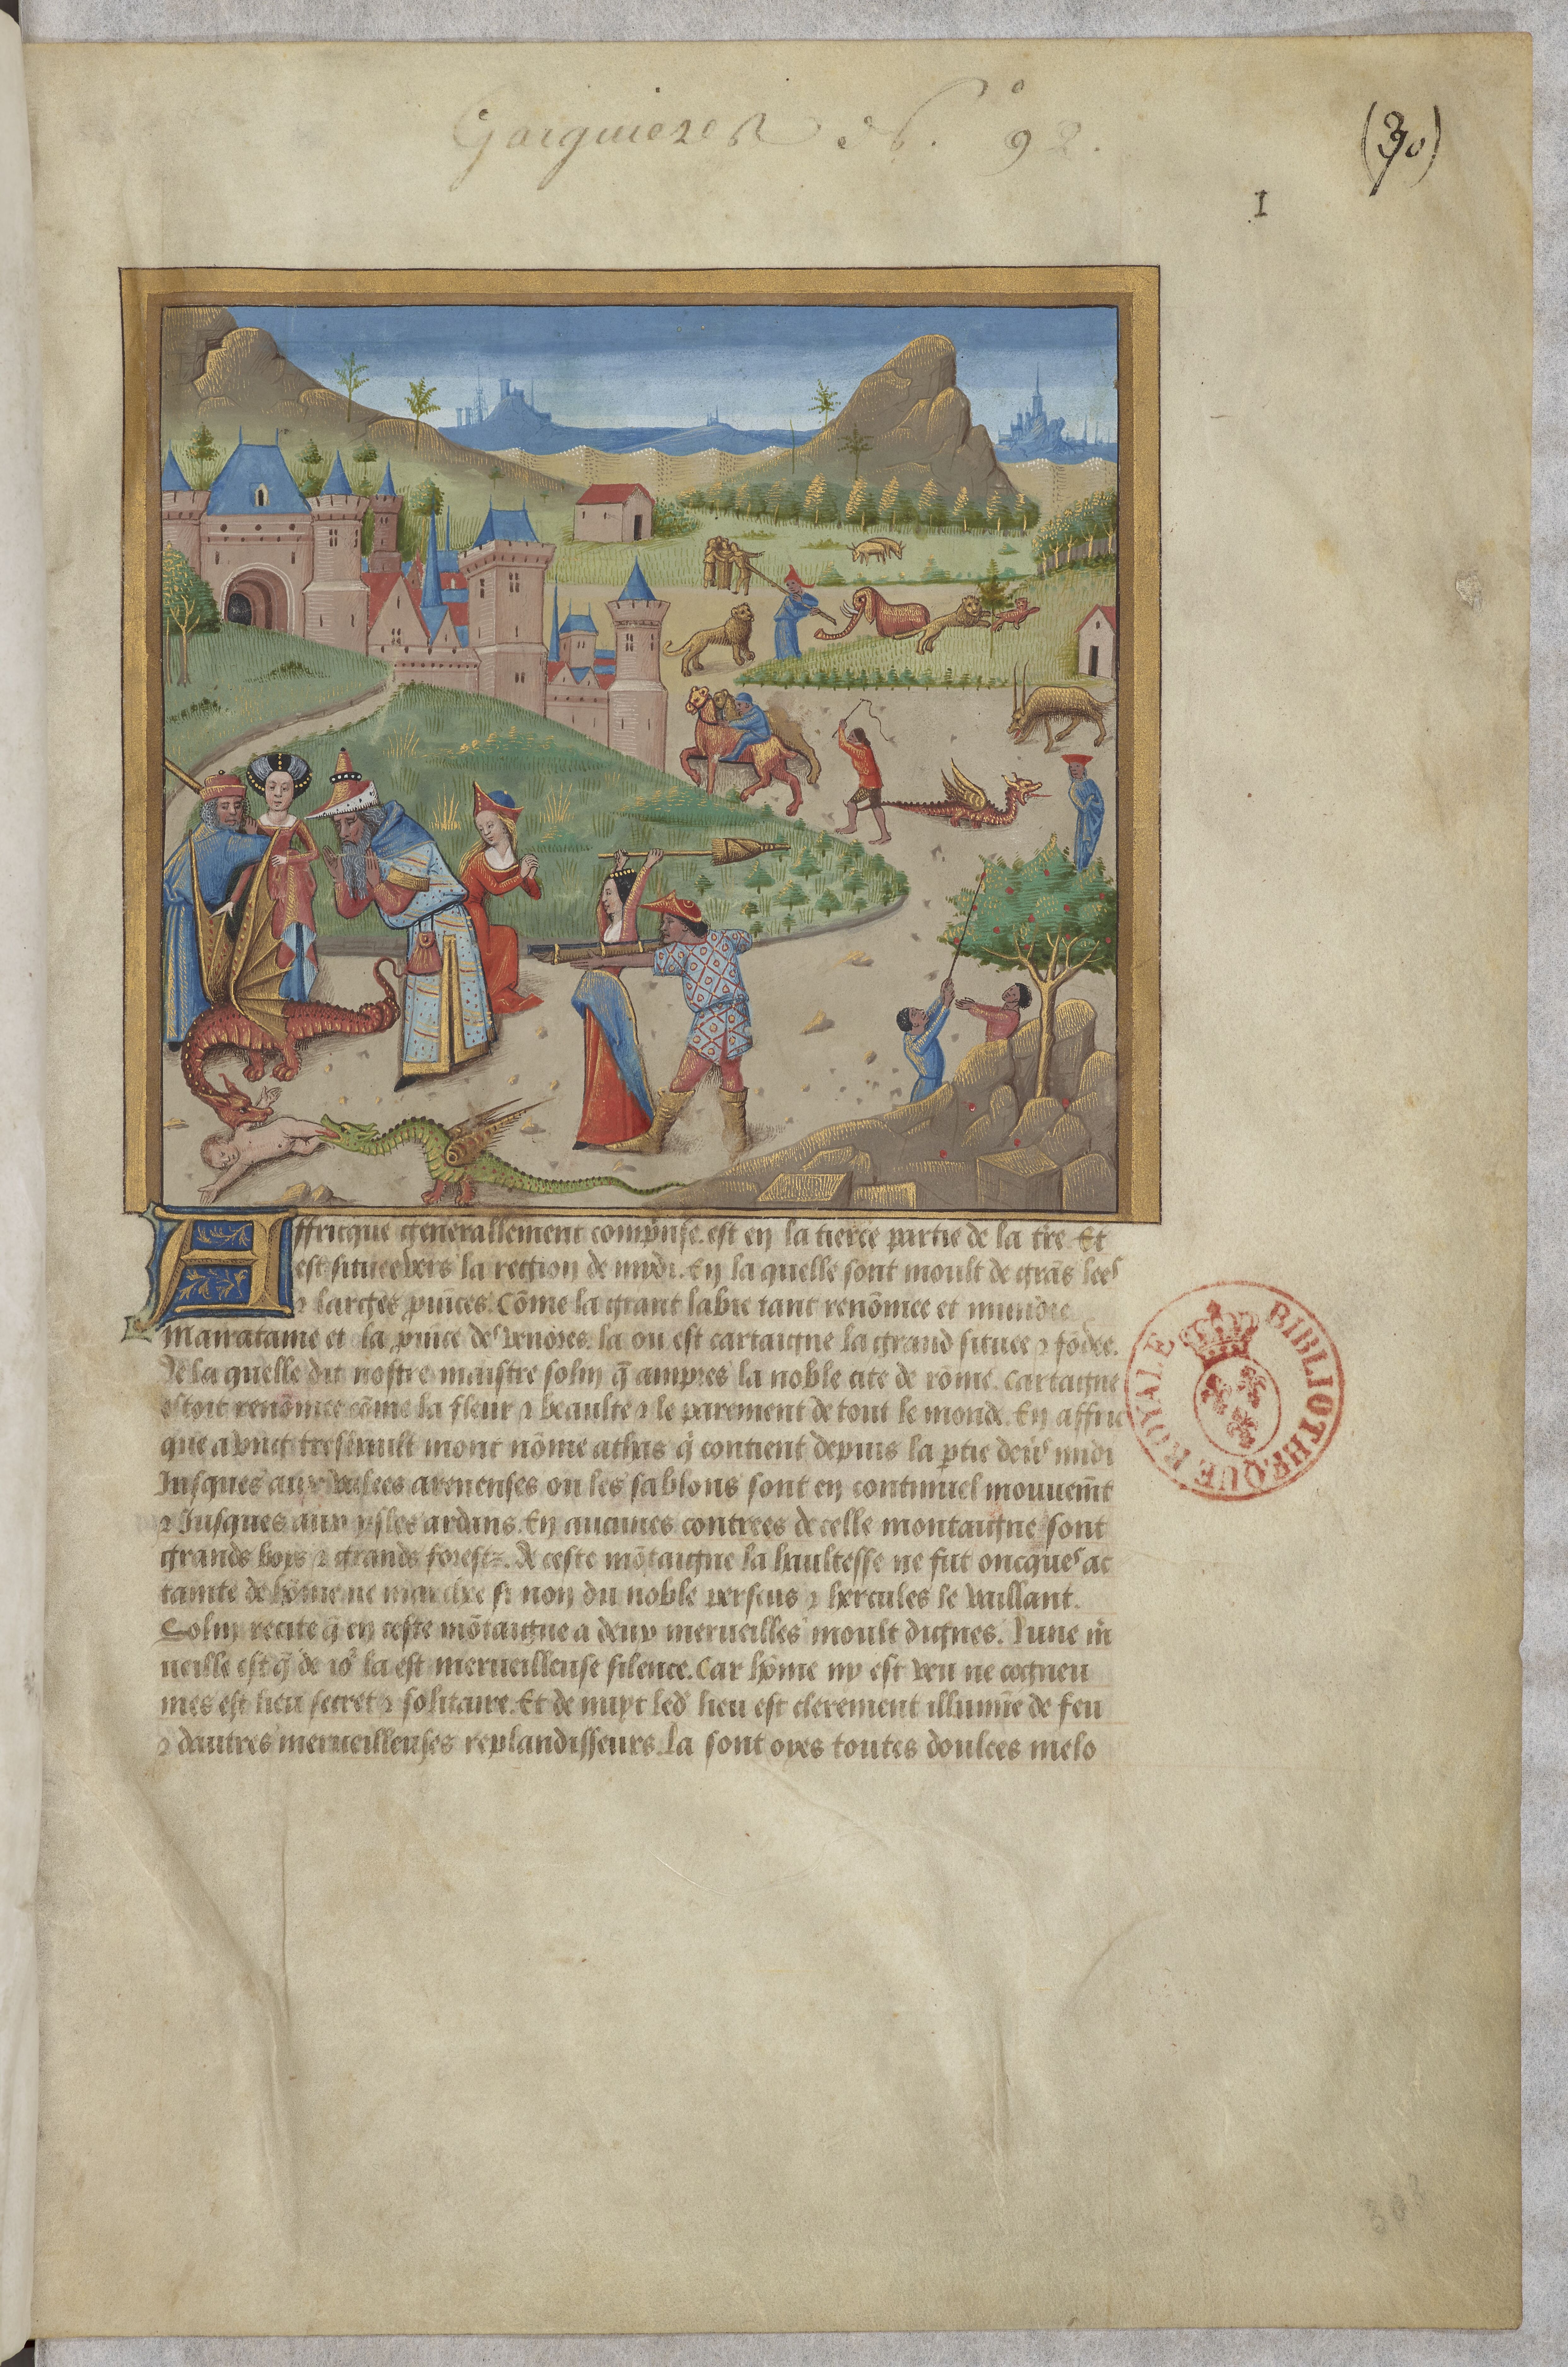 Gaignieres N.° 92.
(30)
I
Affricque generallement comprinse. est en la tierce partie de la tr̃e. Et
est situee vers la region de mydi. En la quelle sont moult de grãs lees
⁊ larges prouĩces. Cõme la grant labie tant renõmee et
Mauratame et la prouĩce de venoies. la ou est cartaigne la grand situee ⁊ fõdee.
De la quelle dit nostre maistre solin q̃ ampres la noble cite de rõme. Cartaigne
estoit renõmee cõme la fleur ⁊ beaulte ⁊ le parement de tout le monde. En affric
que a vng treshault mont nõme athas q̃ contient depuis la ptie deũs midi
Jusques aux valees arenenses ou les sablons sont en continuel mouuem̃t
⁊ Jusques aux ysles ardans. En aucunes contrees de celle montaigne sont
grands boys ⁊ grands forestz. De ceste mõtaigne la haultesse ne fut oncques at
tainte de hõme ne marchee si non du noble perseus ⁊ hercules le vaillant.
Solin recite q̃ en ceste mõtaigne a deux merueilles moult dignes. lune m̃
ueille est q̃ de io͛ la est merueilleuse silence. Car hõme ny est veu ne cogneu
mes est lieu secret ⁊ solitaire. Et de nuyt led' lieu est clerement illumine de feu
⁊ dautres merueilleuses resplandisseurs. la sont oyes toutes doulces melo
BIBLIOTHEQUE ROYALE
303